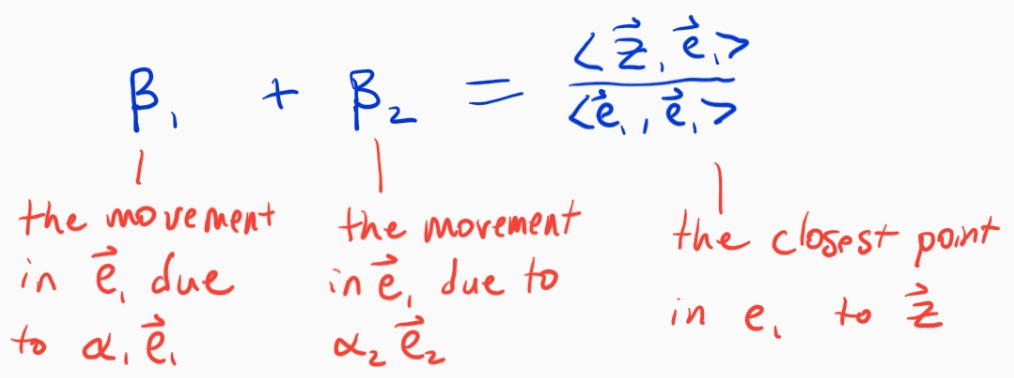 β₁ + β₂ = <z⃗, e⃗₁> / <e⃗₁, e⃗₁>
the movement
in e⃗₁ due
to α₁ e⃗₁
the movement
in e⃗₁ due to
α₂ e⃗₂
the closest point
in e₁ to z⃗